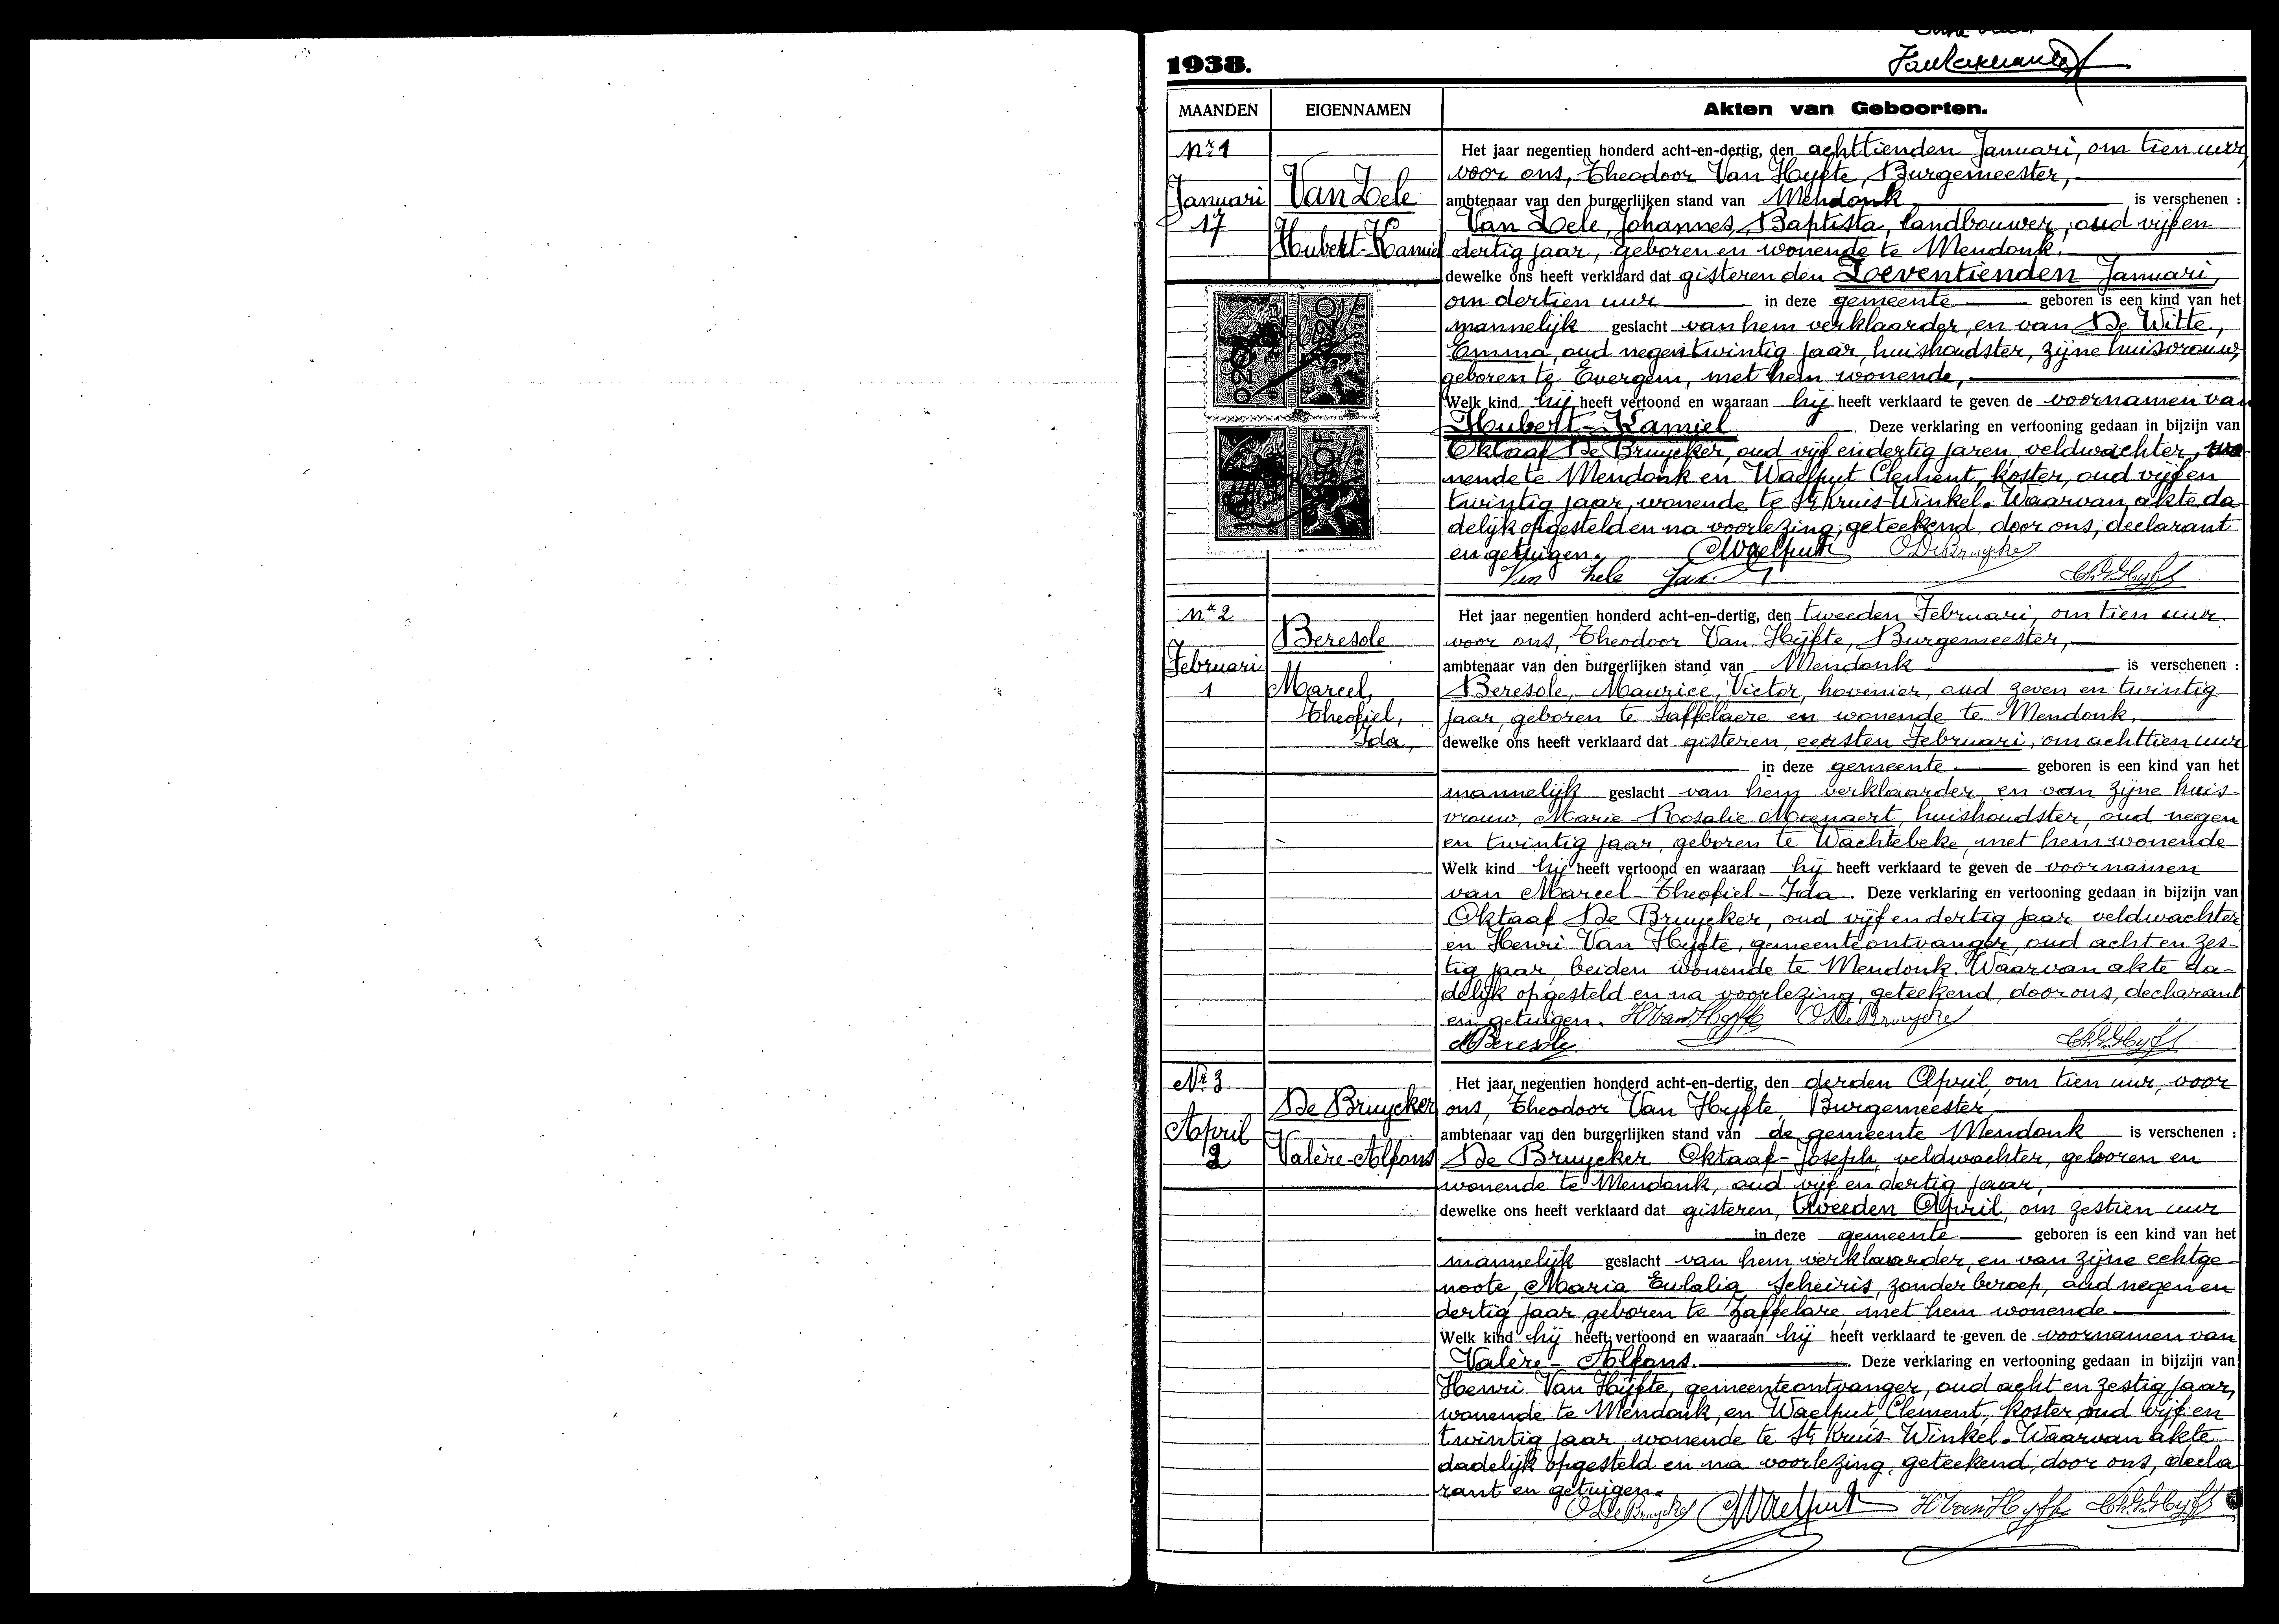 1938.
MAANDEN EIGENNAMEN Akten van Geboorten.
Nr. 1
Januari
17
Van Zele
Hubert-Kamiel
Het jaar negentien honderd acht-en-dertig, den achttienden Januari, om tien uur
voor ons, Theodoor Van Hyfte, Burgemeester,
ambtenaar van den burgerlijken stand van Mendonk is verschenen :
Van Zele, Johannes, Baptista, landbouwer, oud vijf en
dertig jaar, geboren en wonende te Mendonk.
dewelke ons heeft verklaard dat gisteren den Zeeventienden Januari,
om dertien uur in deze gemeente geboren is een kind van het
mannelijk geslacht van hem verklaarder, en van De Witte,
Emma, oud negentwintig jaar, huishoudster, zijne huisvrouw,
geboren te Evergem, met hem wonende,
Welk kind hij heeft vertoond en waaraan hij heeft verklaard te geven de voornamen van
Hubert-Kamiel. Deze verklaring en vertooning gedaan in bijzijn van
Oktaaf De Bruycker, oud vijf en dertig jaren, veldwachter, wo-
nende te Mendonk en Waelput Clement, koster, oud vijf en
twintig jaar, wonende te St Kruis-Winkel. Waarvan akte da-
delijk opgesteld en na voorlezing, geteekend, door ons, declarant
en getuigen. CWaelput ODeBruycker
Van Zele Jan
Nr. 2
Februari
1
Beresole
Marcel,
Theofiel,
Ida,
Het jaar negentien honderd acht-en-dertig, den tweeden Februari, om tien uur.
voor ons, Theodoor Van Hijfte, Burgemeester,
ambtenaar van den burgerlijken stand van Mendonk is verschenen :
Beresole, Maurice, Victor, hovenier, oud zeven en twintig
jaar, geboren te Zaffelaere en wonende te Mendonk,
dewelke ons heeft verklaard dat gisteren, eersten Februari, om achttien uur
in deze gemeente geboren is een kind van het
mannelijk geslacht van hem verklaarder, en van zijne huis-
vrouw, Marie Rosalie Moenaert, huishoudster, oud negen
en twintig jaar, geboren te Wachtebeke, met hem wonende
Welk kind hij heeft vertoond en waaraan hij heeft verklaard te geven de voornamen
van Marcel-Theofiel-Ida. Deze verklaring en vertooning gedaan in bijzijn van
Oktaaf De Bruycker, oud vijf en dertig jaar veldwachter
en Henri Van Hyfte, gemeenteontvanger, oud acht en zes-
tig jaar, beiden wonende te Mendonk. Waarvan akte da-
delijk opgesteld en na voorlezing, geteekend, door ons, decharant
en getuigen. HVanHyfte ODeBruycker
MBeresole
Nr. 3
April
2
De Bruycker
Valère-Alfons
Het jaar negentien honderd acht-en-dertig, den derden April, om tien uur, voor
ons, Theodoor Van Hyfte, Burgemeester,
ambtenaar van den burgerlijken stand van de gemeente Mendonk is verschenen :
De Bruycker Oktaaf-Joseph, veldwachter, geboren en
wonende te Mendonk, oud vijf en dertig jaar,
dewelke ons heeft verklaard dat gisteren, tweeden April, om zestien uur
in deze gemeente geboren is een kind van het
mannelijk geslacht van hem verklaarder, en van zijne echtge-
noote, Maria Eulalia Scheiris, zonder beroep, oud negen en
dertig jaar geboren te Zaffelare, met hem wonende.
Welk kind hij heeft vertoond en waaraan hij heeft verklaard te geven de voornamen van
Valère-Alfons. Deze verklaring en vertooning gedaan in bijzijn van
Henri Van Hijfte, gemeenteontvanger, oud acht en zestig jaar,
wonende te Mendonk, en Waelput, Clement, koster oud vijf en
twintig jaar, wonende te St Kruis-Winkel. Waarvan akte
dadelijk opgesteld en na voorlezing, geteekend, door ons, decla-
rant en getuigen.
ODeBruycker CWaelput HVanHyfte